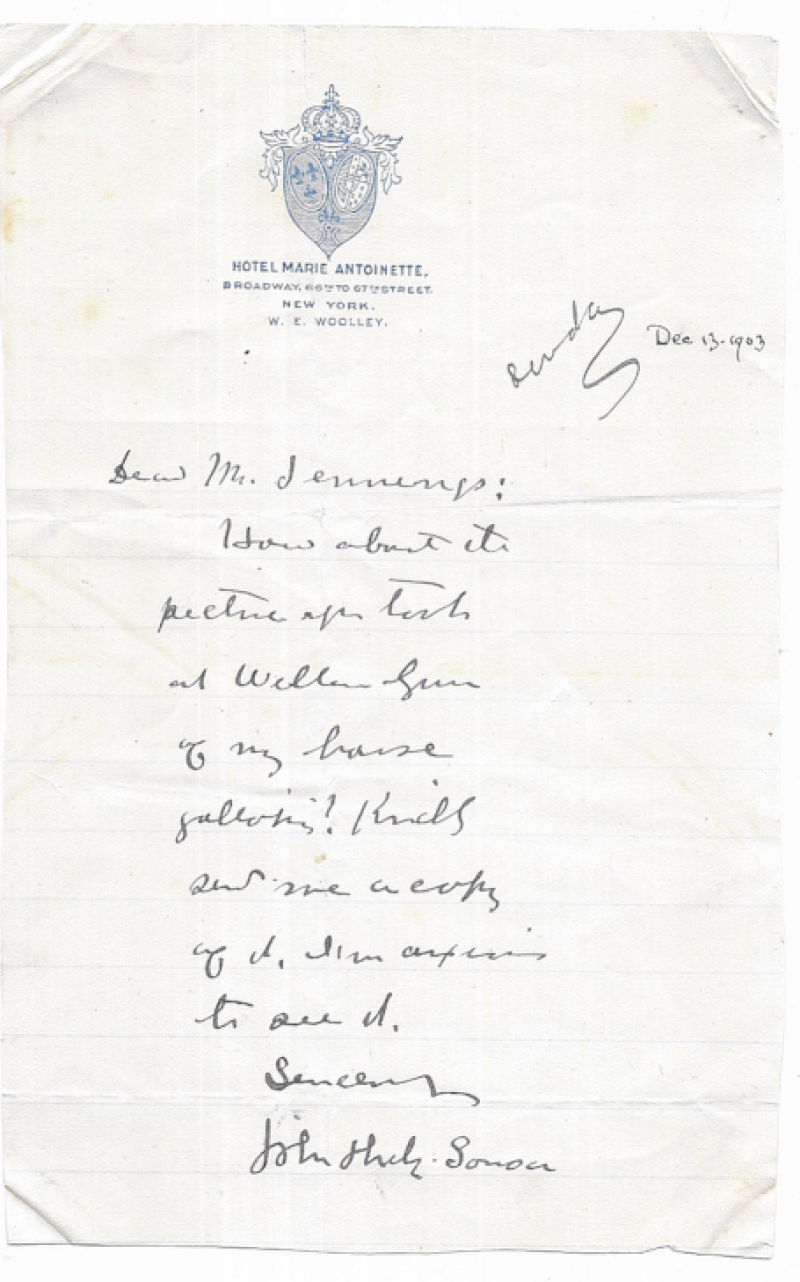 HOTEL MARIE ANTOINETTE.
BROADWAY, 66TH TO 67TH STREET.
NEW YORK.
W. E. WOOLLEY.
Sunday
Dec 13-1903
Dear Mr. Jennings:
How about the
picture you took
at Willow Grove
of my horse
galloping? Kindly
send me a copy
of it. I'm anxious
to see it.
Sincerely
John Philip Sousa